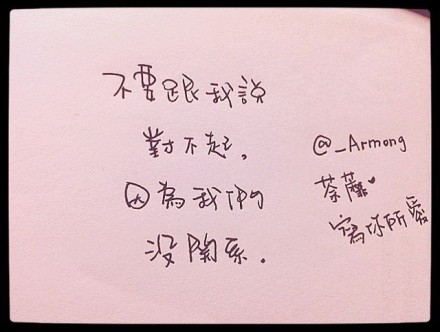 不要跟我説
對不起,
因為我們
没関系.
@_Armong
荼蘼♥
寫你所愛